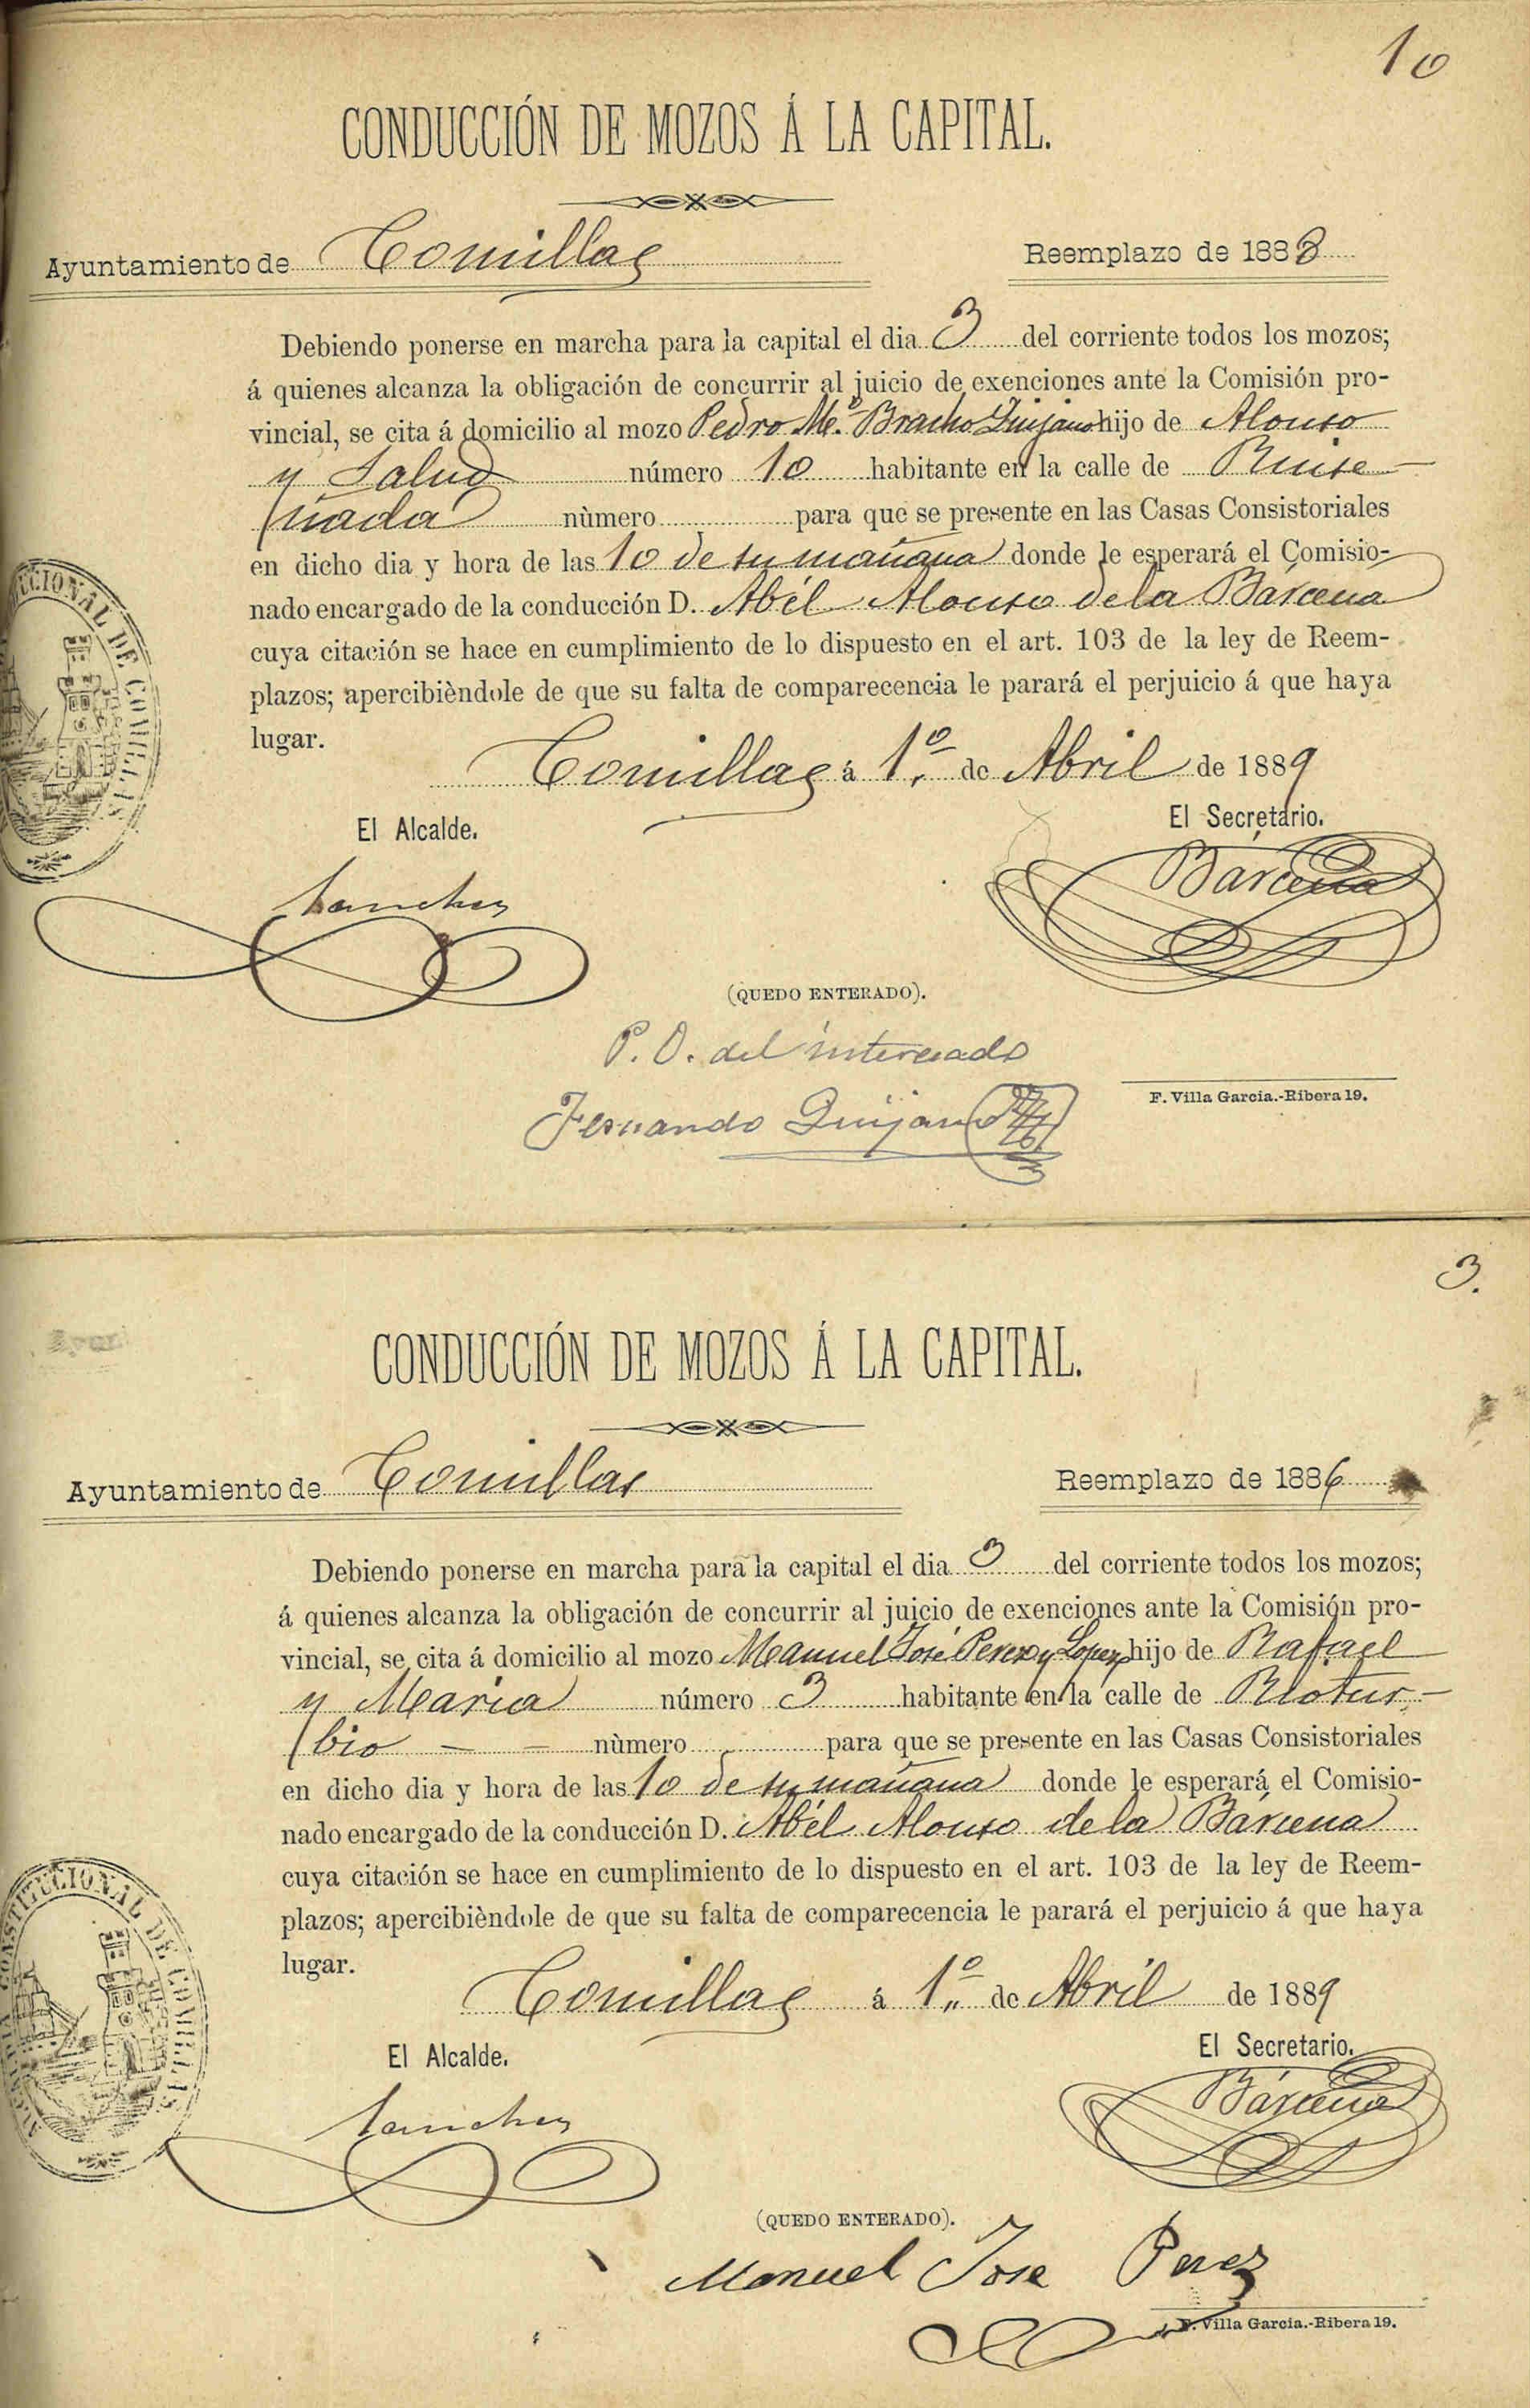 10
CONDUCCIÓN DE MOZOS Á LA CAPITAL.
Ayuntamiento de Comillas Reemplazo de 1888
Debiendo ponerse en marcha para la capital el dia 3 del corriente todos los mozos;
á quienes alcanza la obligación de concurrir al juicio de exenciones ante la Comisión pro-
vincial, se cita á domicilio al mozo Pedro Mª. Bracho Quijano hijo de Alonso
y Salud número 10 habitante en la calle de Ruise-
ñada nùmero para que se presente en las Casas Consistoriales
en dicho dia y hora de las 10 de su mañana donde le esperará el Comisio-
nado encargado de la conducción D. Abél Alonso de la Bárcena
cuya citación se hace en cumplimiento de lo dispuesto en el art. 103 de la ley de Reem-
plazos; apercibièndole de que su falta de comparecencia le parará el perjuicio á que haya
lugar.
Comillas á 1.º de Abril de 1889
El Alcalde. El Secretario.
Sanchez Bárcena
(QUEDO ENTERADO).
P. O. del interesado
Fernando Quijano
F. Villa Garcia.-Ribera 19.
CIONAL DE COMILLAS
3.
CONDUCCIÓN DE MOZOS Á LA CAPITAL.
Ayuntamiento de Comillas Reemplazo de 1886
Debiendo ponerse en marcha para la capital el dia 3 del corriente todos los mozos;
á quienes alcanza la obligación de concurrir al juicio de exenciones ante la Comisión pro-
vincial, se cita á domicilio al mozo Manuel José Perez y Lopez hijo de Rafael
y Maria número 3 habitante en la calle de Riotur-
bio nùmero para que se presente en las Casas Consistoriales
en dicho dia y hora de las 10 de su mañana donde le esperará el Comisio-
nado encargado de la conducción D. Abél Alonso de la Bárcena
cuya citación se hace en cumplimiento de lo dispuesto en el art. 103 de la ley de Reem-
plazos; apercibièndole de que su falta de comparecencia le parará el perjuicio á que haya
lugar.
Comillas á 1.º de Abril de 1889
El Alcalde. El Secretario.
Sanchez Bárcena
(QUEDO ENTERADO).
Manuel Jose Perez
F. Villa Garcia.-Ribera 19.
CONSTITUCIONAL DE COMILLAS